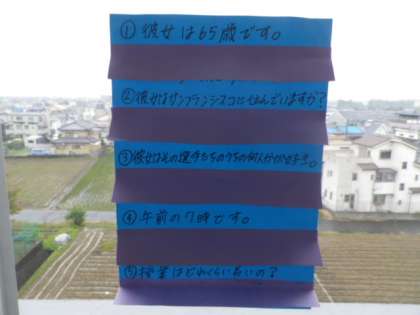 ① 彼女は65歳です。
② 彼女はサンフランシスコに住んでいますか?
③ 彼女はその選手たちのうちの何人かが好き。
④ 午前の7時です。
⑤ 授業はどれくらい長いの?